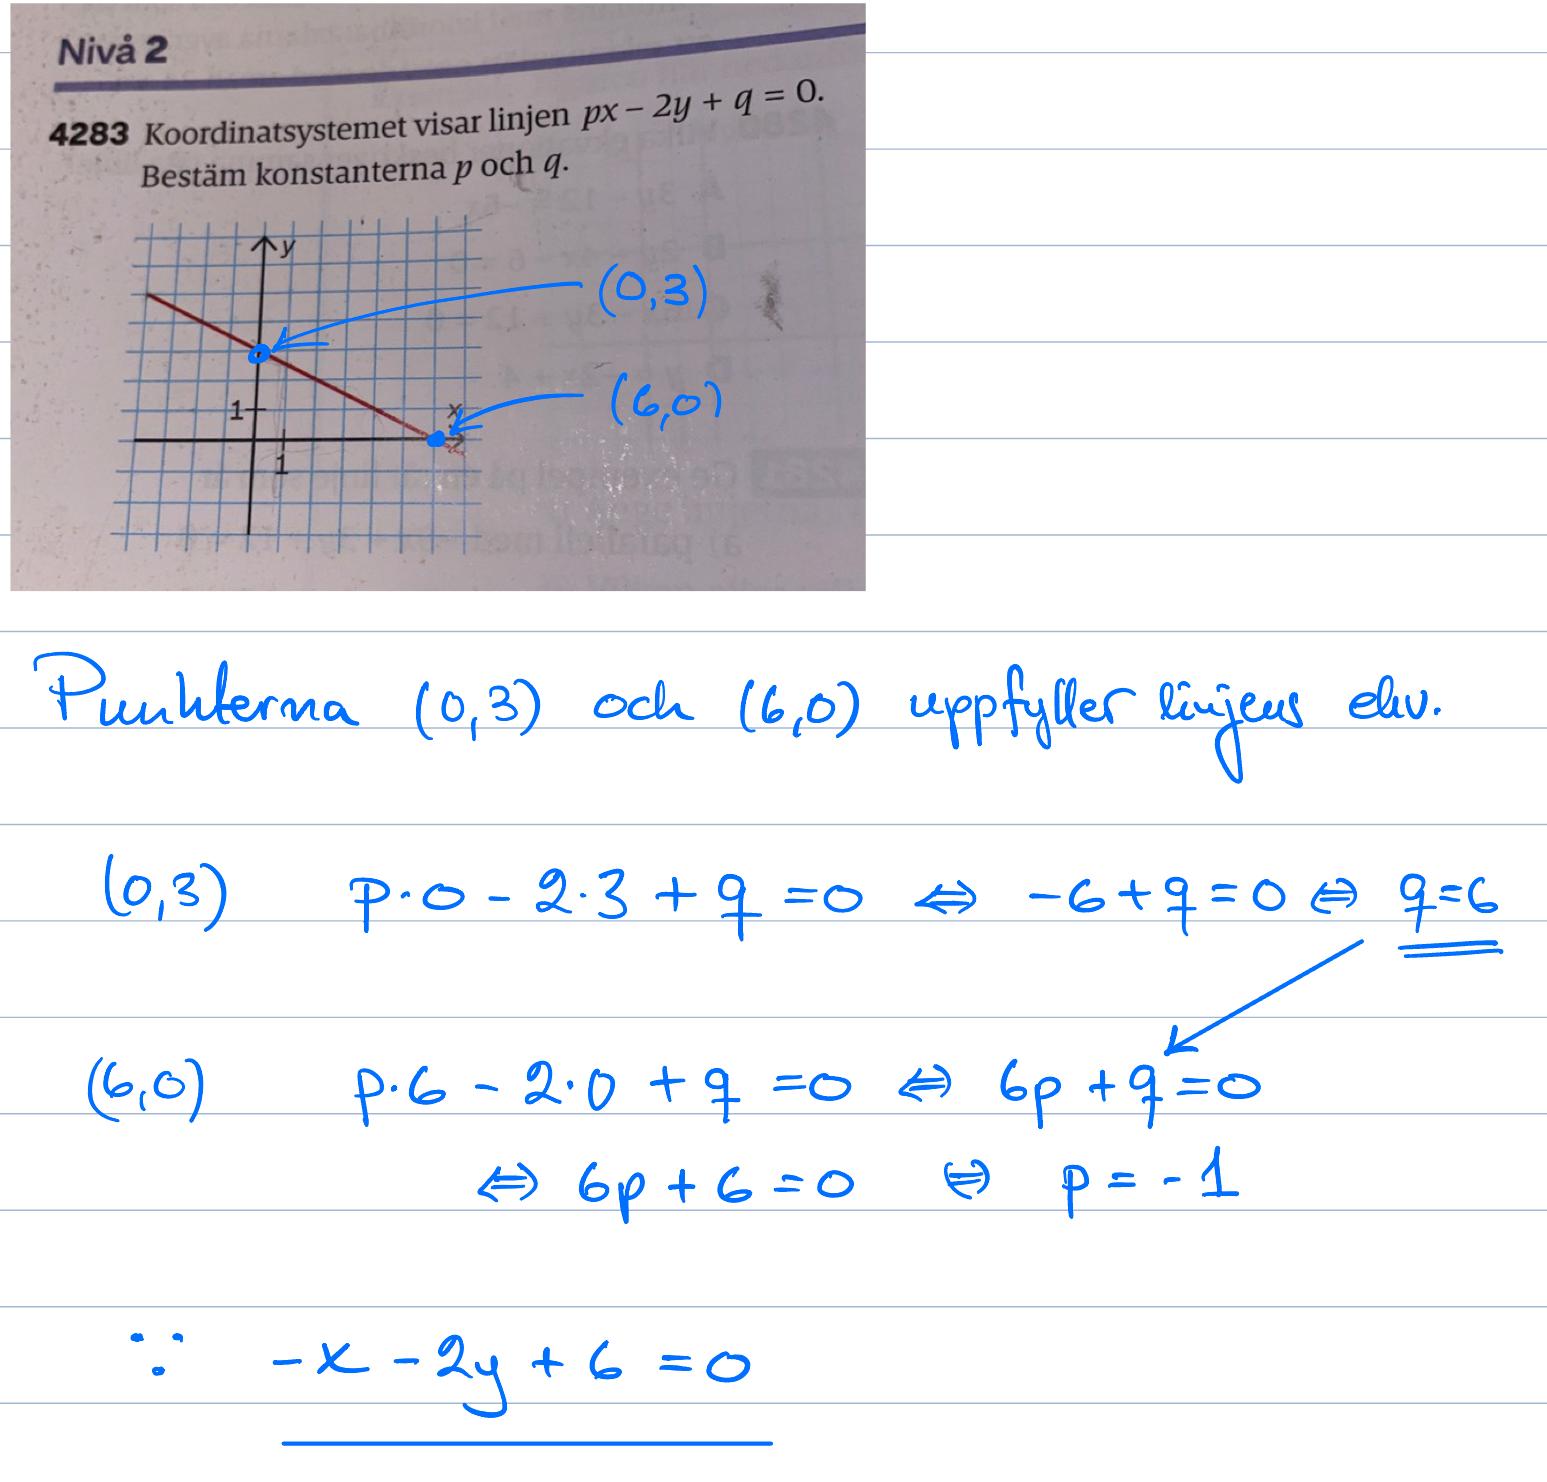 Nivå 2
4283 Koordinatsystemet visar linjen px − 2y + q = 0.
Bestäm konstanterna p och q.
y
(0,3)
(6,0)
1
x
1
Punkterna (0,3) och (6,0) uppfyller linjens ekv.
(0,3) p·0 - 2·3 + q = 0 ⇔ -6+q=0 ⇔ q=6
(6,0) p·6 - 2·0 + q = 0 ⇔ 6p + q = 0
⇔ 6p + 6 = 0 ⇔ p = -1
∵ -x - 2y + 6 = 0